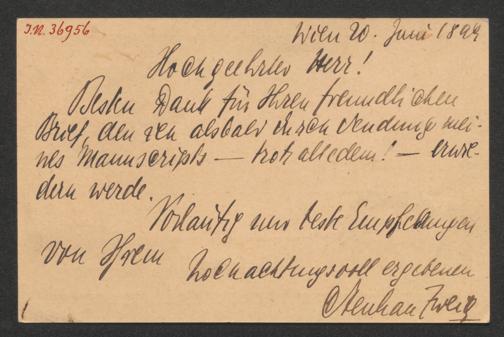 I.N. 36956
Wien 20. Juni 1899
Hochgeehrter Herr!
Besten Dank für Ihren freundlichen
Brief, den ich alsbald durch Sendung mei-
nes Manuscripts — trotz alledem! — erwi-
dern werde.
Vorläufig nur beste Empfehlungen
von Ihrem hochachtungsvoll ergebenen
Zweig